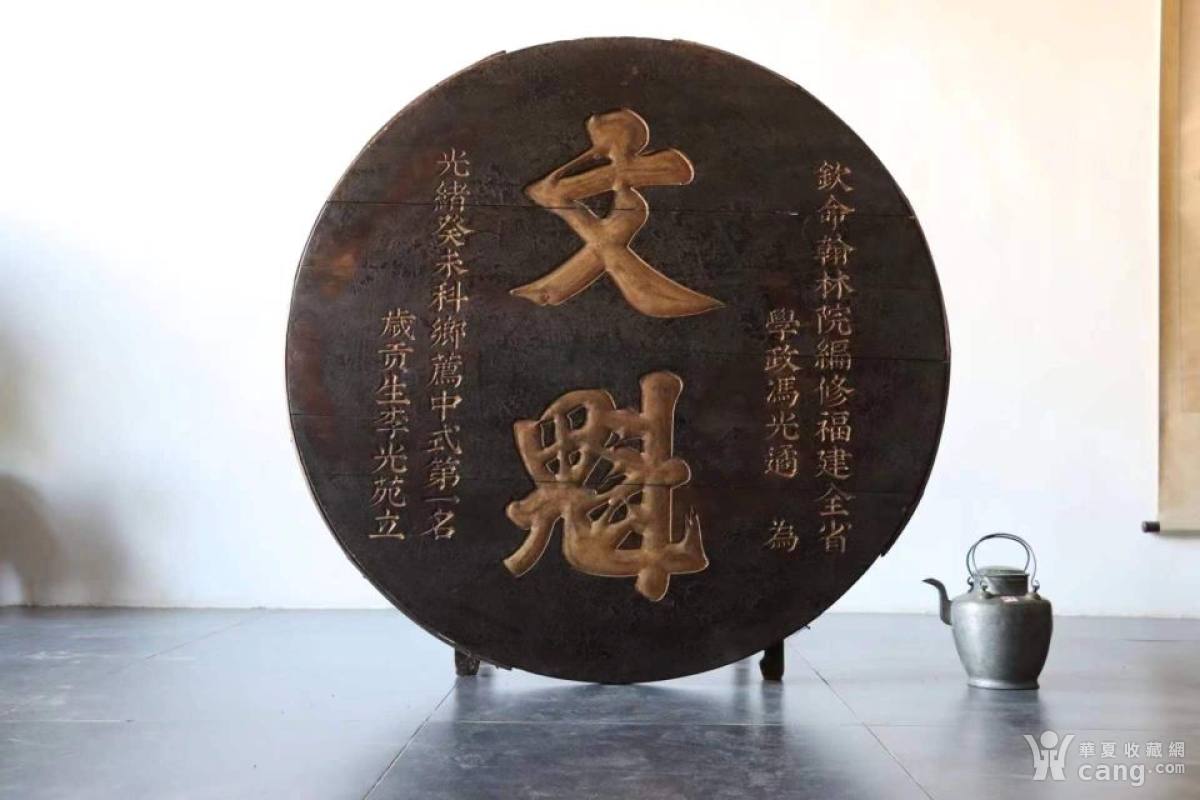 欽命翰林院編修福建全省
學政馮光遹 為
文魁
光緒癸未科鄉薦中式第一名
歲貢生李光苑立
華夏收藏網
cang.com